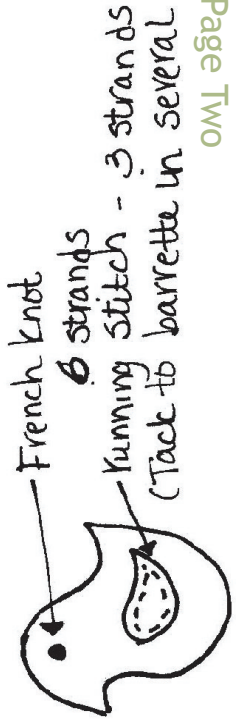 Page Two
French knot
6 strands
running stitch - 3 strands
(Tack to barrette in several